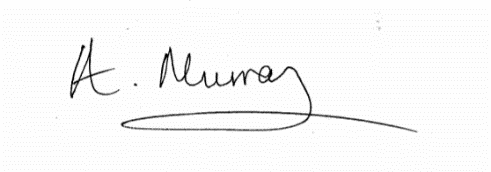 A. Murray